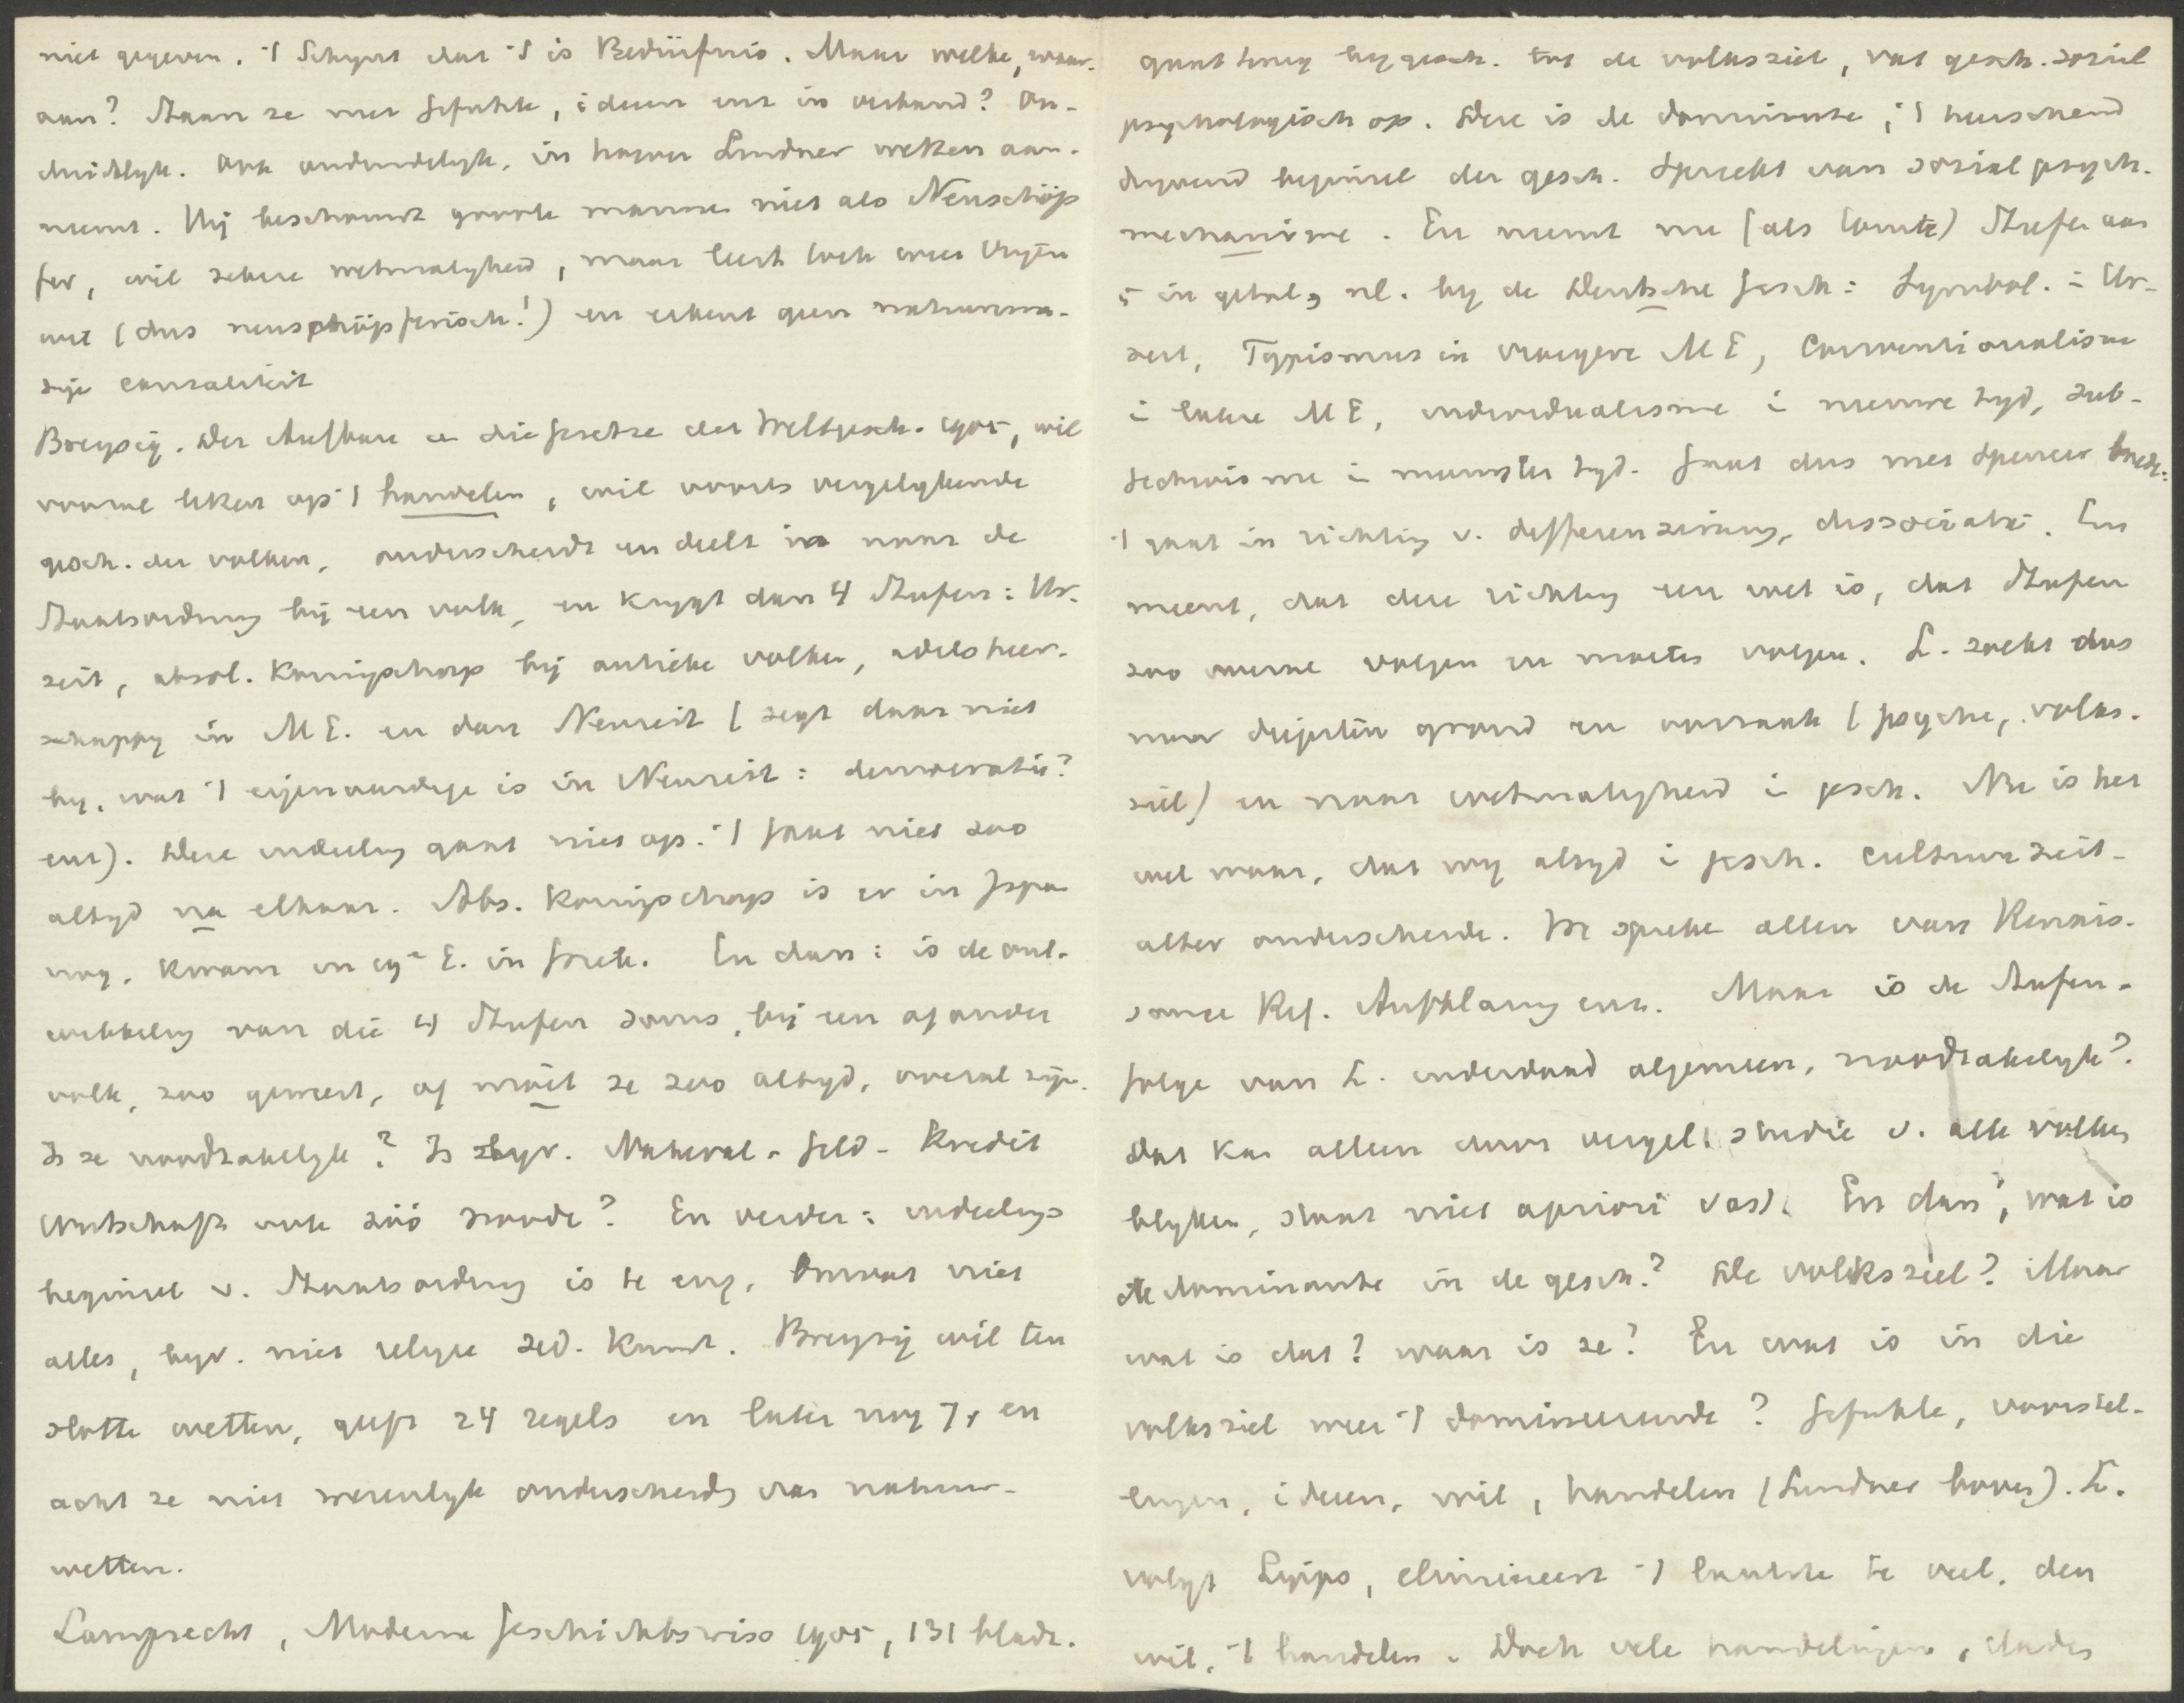 niet gegeven. 't Schynt dat 't is Bedürfnis. Maar welke, waar-
aan? Staan ze met Gefühle, ideen enz in verband? On-
duidelyk. Ook onduidelyk, in hoever Lindner wetten aan-
neemt. Hij beschouwt groote mannen niet als Neuschöp
fer, wil zekere wetmatigheid, maar leert toch weer vryen
wil (dus neuschöpferisch!) en erkent geen natuurma-
tige causaliteit
Breysig. Der Aufbau u die Gesetze der Weltgesch. 1905, wil
vooral letten op 't handelen, wil voorts vergelykende
gesch. der volken, onderscheidt en deelt in naar de
Staatsordnung bij een volk, en krygt dan 4 Stufen: Ur-
zeit, absol. Koningschap bij antieke volken, adelsheer-
schappy in M E. en dan Neuzeit (zegt daar niet
by, wat 't eigenaardige is in Neuzeit: democratie?
enz). Deze indeeling gaat niet op. 't gaat niet zoo
altyd na elkaar. Abs. Koningschap is er in Japan
nog, kwam in 19e E. in Grete. En dan: is de ont-
wikkeling van die 4 Stufen soms, bij een of ander
volk, zoo geweest, of moet ze zoo altyd, overal zijn.
Is ze noodzakelyk? Is byv. Natural- Geld- Kredit
wirtschaft ook zóó noodz? En verder: indeelings
beginsel v. Staatsordnung is te eng. Omvat niet
alles, byv. niet religie zed. kunst. Breysig wil ten
slotte wetten, geeft 24 regels en later nog 7, en
acht ze niet wezenlyk onderscheiden van natuur-
wetten.
Lamprecht, Moderne Geschichtswiss 1905, 131 bladz.
gaat terug by gesch. tot de volksziel, vat gesch. sozial
psychologisch op. Deze is de dominante, 't heerschend
dryvend beginsel der gesch. Spreekt van sozial psych.
mechanisme. En neemt nu (als Comte) Stufen aan
5 in getal, nl. by de Deutsche Gesch: Symbol. i Ur-
zeit, Typismus in vroegere M E, Conventionalisme
i latere M E, individualisme i nieuwe tyd, sub-
jectivisme i nieuwste tyd. Gaat dus met Spencer mede:
't gaat in richting v. differenzierung, dissociatie. En
meent, dat deze richting een wet is, dat Stufen
zoo overal volgen en moeten volgen. L. zoekt dus
naar diepsten grond en oorzaak (psyche, volks-
ziel) en naar wetmatigheid i gesch. Nu is het
wel waar, dat wy altyd i gesch. culturzeit-
alter onderscheide. We spreke allen van Renais-
sance Ref. Aufklärung enz. Maar is de Stufen-
folge van L. inderdaad algemeen, noodzakelyk?
Dat kan alleen door vergel. studie v. alle volken
blyken, staat niet apriori vast. En dan, wat is
de dominante in de gesch.? De volksziel? Maar
wat is dat? waar is ze? En wat is in die
volksziel weer 't domineerende? Gefühle, voorstel-
lingen, ideen, wil, handelen (Lindner boven). L.
volgt Lipps, elimineert 't laatste te veel, den
wil, 't handelen. Doch vele handelingen, daden